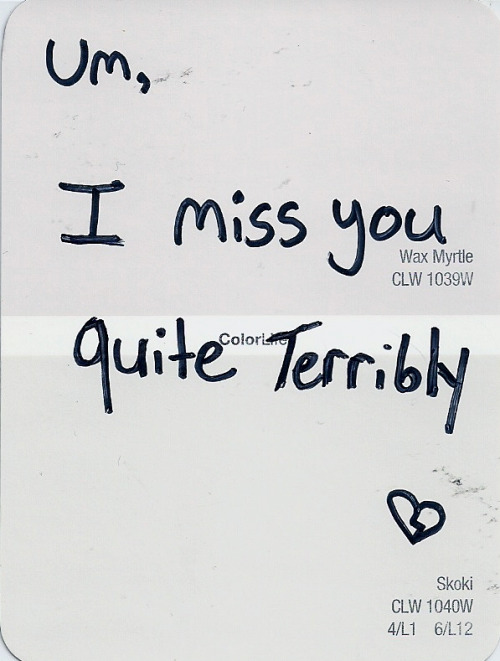 Um,
I miss you
Wax Myrtle
CLW 1039W
quite Terribly
ColorLife
Skoki
CLW 1040W
4/L1 6/L12